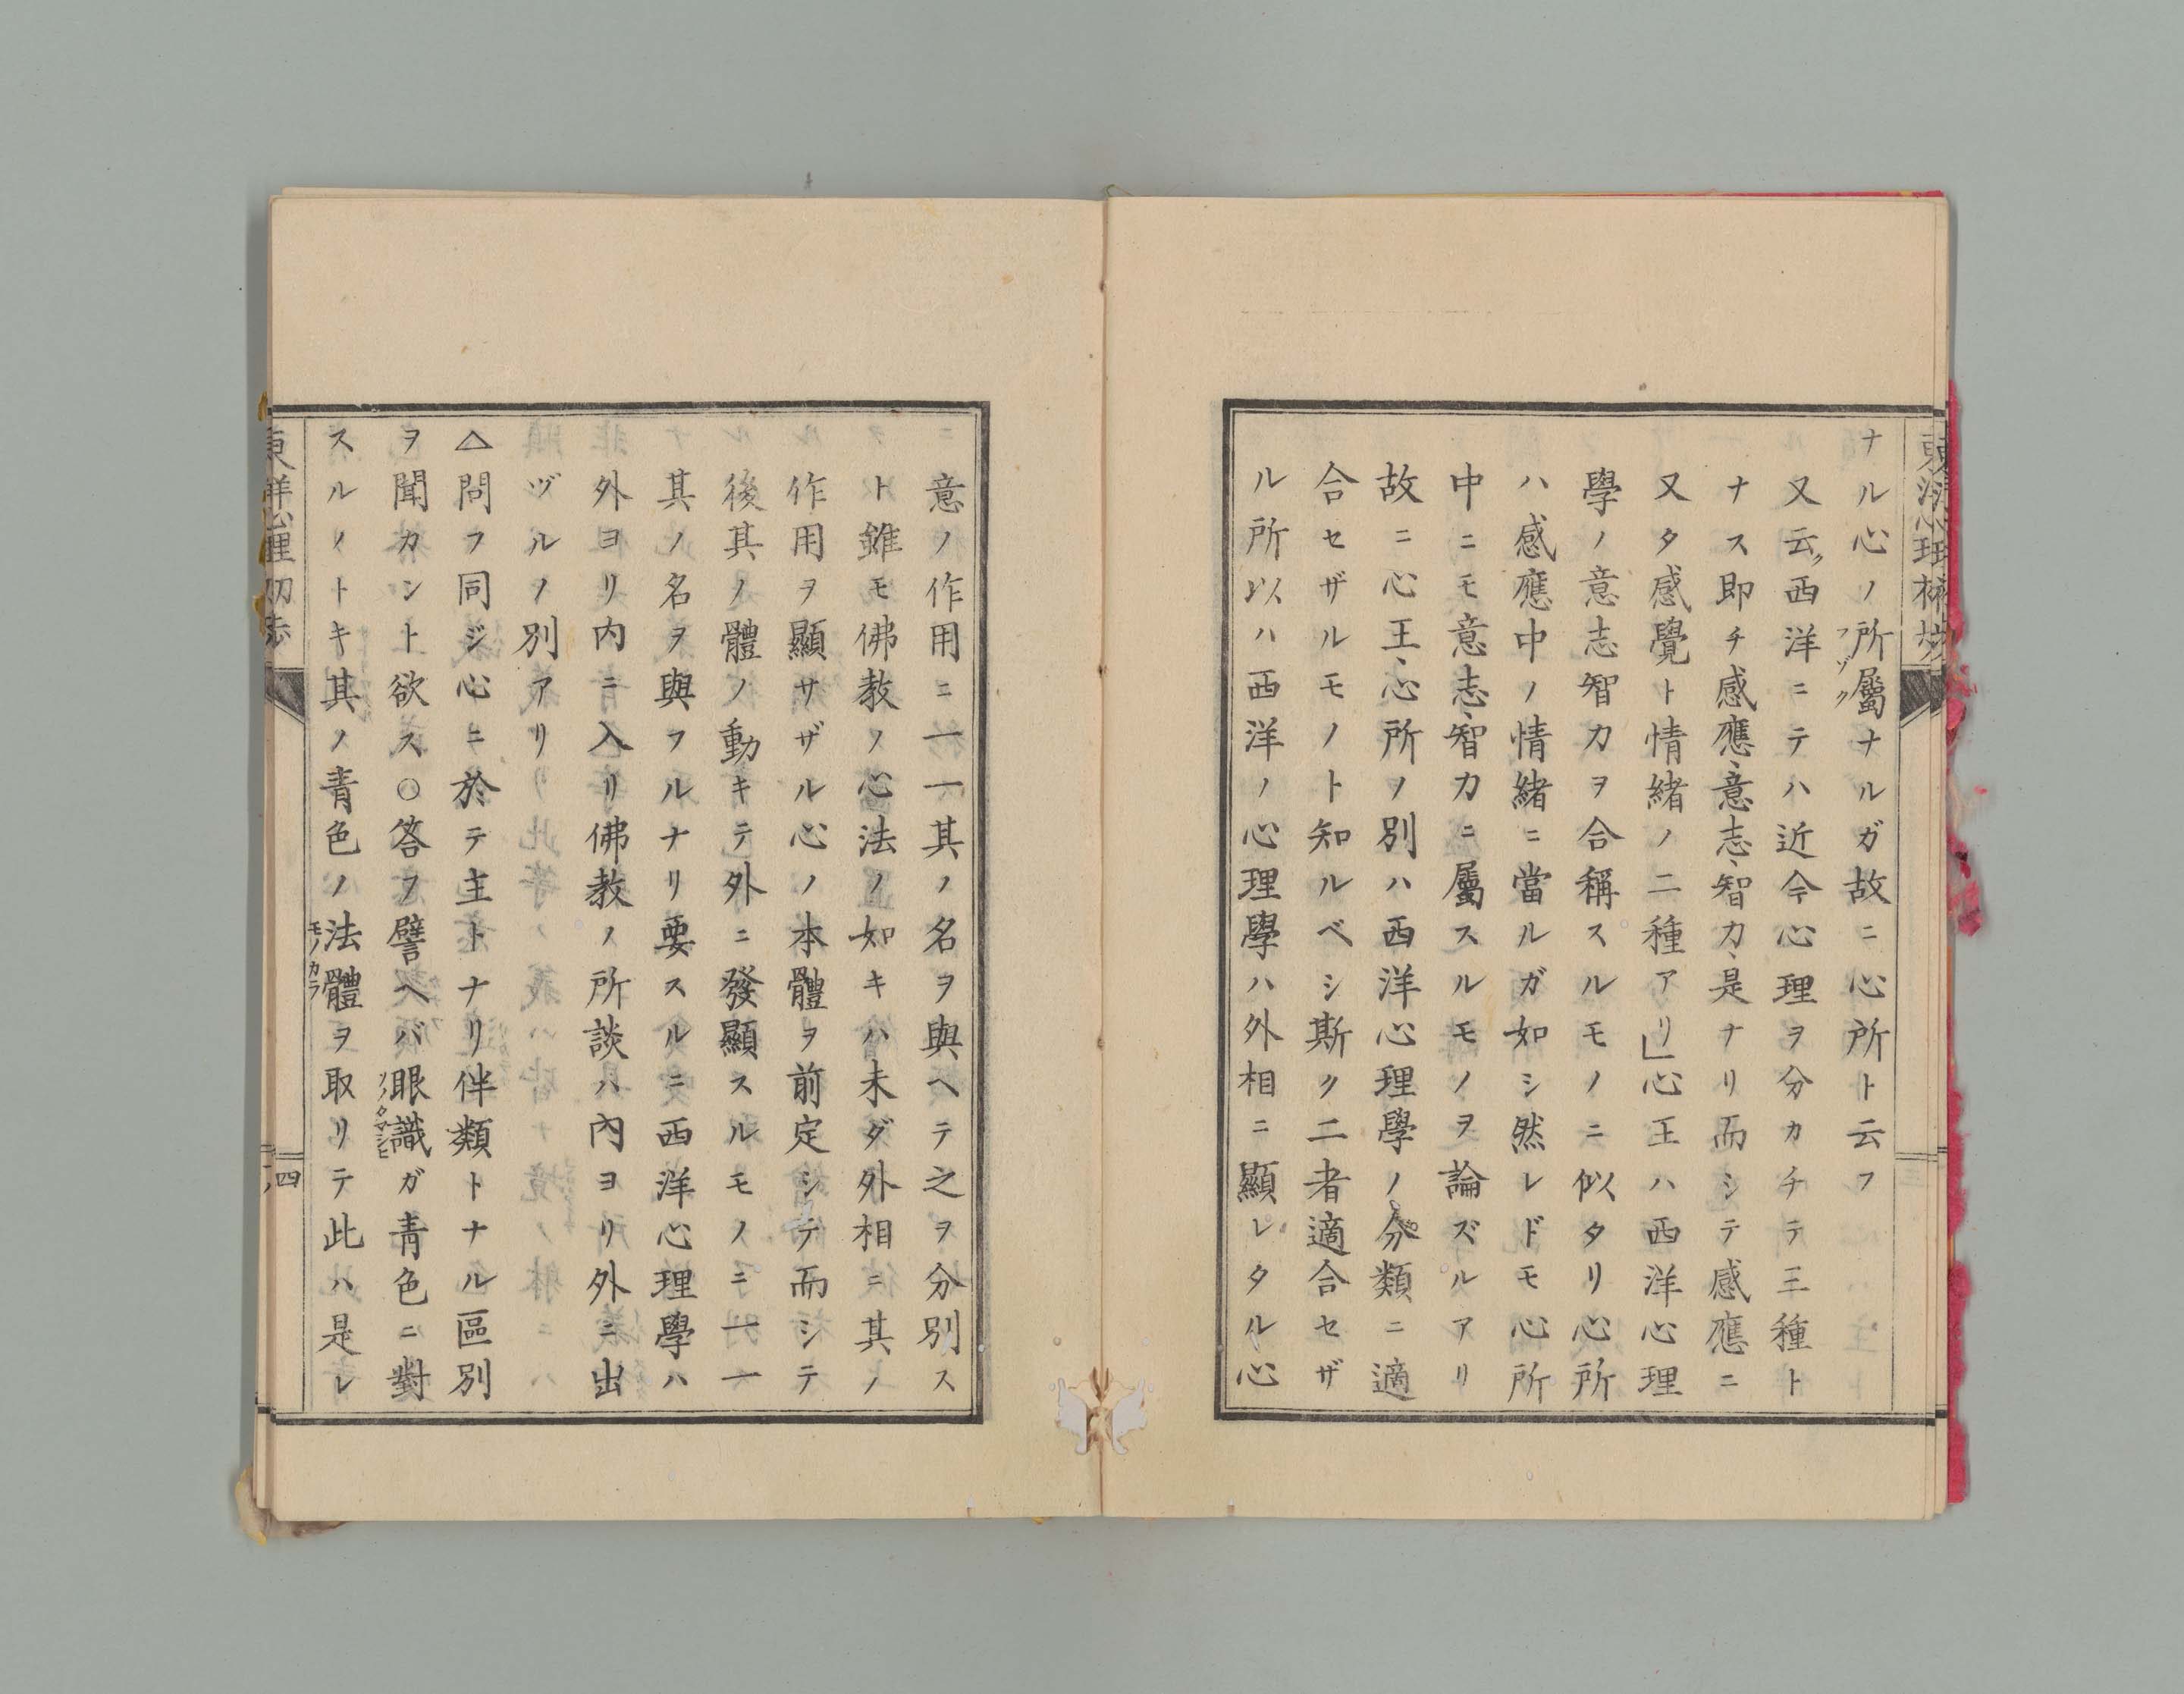 ナル心ノ所屬ナルガ故ニ心所ト云フ
フゾク
又云ク西洋ニテハ近今心理ヲ分カチテ三種ト
ナス即チ感應、意志、智力、是ナリ而シテ感應ニ
又タ感覺ト情緒ノ二種アリ」心王ハ西洋心理
學ノ意志智力ヲ合稱スルモノニ似タリ心所
ハ感應中ノ情緒ニ當ルガ如シ然レドモ心所
中ニモ意志、智力ニ屬スルモノヲ論ズルアリ
故ニ心王、心所ノ別ハ西洋心理學ノ分類ニ適
合セザルモノト知ルベシ斯ク二者適合セザ
ル所以ハ西洋ノ心理學ハ外相ニ顯レタル心
意ノ作用ニ一一其ノ名ヲ與ヘテ之ヲ分別ス
ト雖モ佛教ノ心法ノ如キハ未ダ外相ニ其ノ
作用ヲ顯サザル心ノ本體ヲ前定シテ而シテ
後其ノ體ノ動キテ外ニ發顯スルモノニ一一
其ノ名ヲ與フルナリ要スルニ西洋心理學ハ
外ヨリ内ニ入リ佛教ノ所談ハ内ヨリ外ニ出
ヅルノ別アリ
△問フ同ジ心ニ於テ主トナリ伴類トナル區別
ヲ聞カント欲ス○答フ譬ヘバ眼識ガ青色ニ對
スルノトキ其ノ青色ノ法體ヲ取リテ此ハ是レ
モノカラ
東洋心理初歩
四